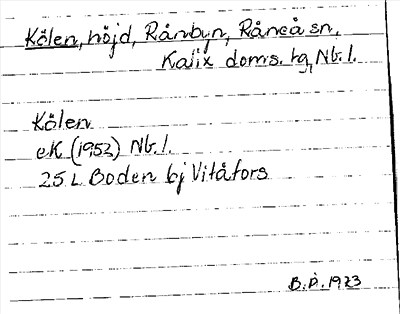 Kölen, höjd, Rånbyn, Råneå sn,
Kalix doms. tg, Nb. l.
Kölen
eK (1952) Nb. l.
25 L Boden bj Vitåfors
B. D. 1923